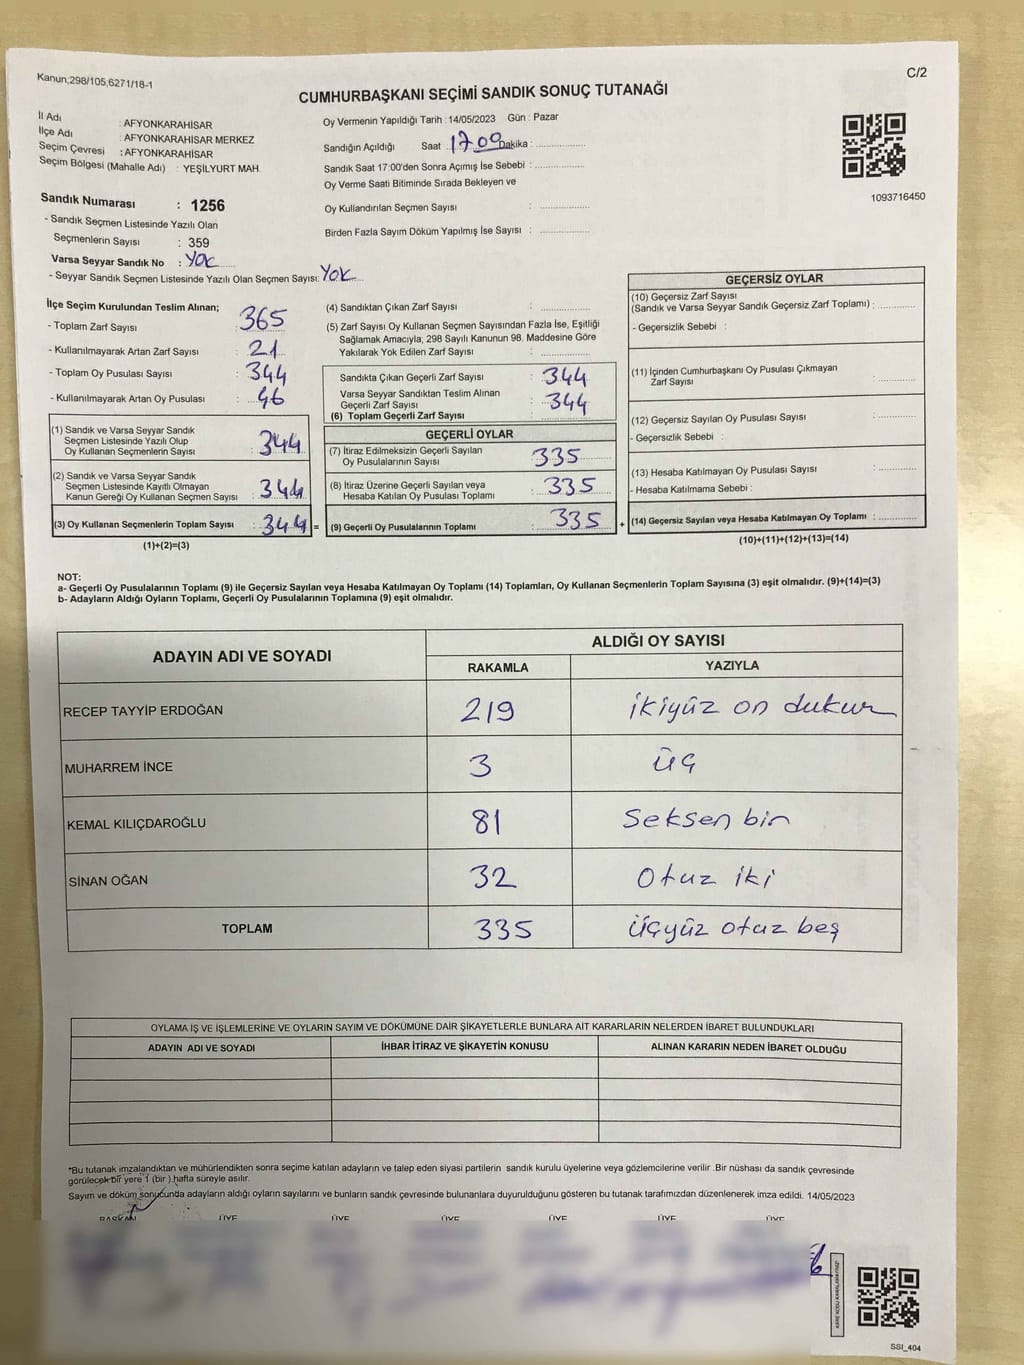 Kanun;298/105,6271/18-1
C/2
CUMHURBAŞKANI SEÇİMİ SANDIK SONUÇ TUTANAĞI
İl Adı : AFYONKARAHİSAR
İlçe Adı : AFYONKARAHİSAR MERKEZ
Seçim Çevresi : AFYONKARAHİSAR
Seçim Bölgesi (Mahalle Adı) : YEŞİLYURT MAH.
Sandık Numarası : 1256
- Sandık Seçmen Listesinde Yazılı Olan
Seçmenlerin Sayısı : 359
Varsa Seyyar Sandık No : YOK
- Seyyar Sandık Seçmen Listesinde Yazılı Olan Seçmen Sayısı: YOK
Oy Vermenin Yapıldığı Tarih : 14/05/2023 Gün : Pazar
Sandığın Açıldığı Saat : 17.00 Dakika :
Sandık Saat 17:00'den Sonra Açımış İse Sebebi :
Oy Verme Saati Bitiminde Sırada Bekleyen ve
Oy Kullandırılan Seçmen Sayısı :
Birden Fazla Sayım Döküm Yapılmış İse Sayısı :
1093716450
İlçe Seçim Kurulundan Teslim Alınan;
- Toplam Zarf Sayısı : 365
- Kullanılmayarak Artan Zarf Sayısı : 21
- Toplam Oy Pusulası Sayısı : 344
- Kullanılmayarak Artan Oy Pusulası :
(1) Sandık ve Varsa Seyyar Sandık
Seçmen Listesinde Yazılı Olup
Oy Kullanan Seçmenlerin Sayısı : 344
(2) Sandık ve Varsa Seyyar Sandık
Seçmen Listesinde Kayıtlı Olmayan
Kanun Gereği Oy Kullanan Seçmen Sayısı : 344
(3) Oy Kullanan Seçmenlerin Toplam Sayısı : 344 =
(1)+(2)=(3)
(4) Sandıktan Çıkan Zarf Sayısı :
(5) Zarf Sayısı Oy Kullanan Seçmen Sayısından Fazla İse, Eşitliği
Sağlamak Amacıyla, 298 Sayılı Kanunun 98. Maddesine Göre
Yakılarak Yok Edilen Zarf Sayısı :
Sandıkta Çıkan Geçerli Zarf Sayısı : 344
Varsa Seyyar Sandıktan Teslim Alınan
Geçerli Zarf Sayısı : 344
(6) Toplam Geçerli Zarf Sayısı
GEÇERLİ OYLAR
(7) İtiraz Edilmeksizin Geçerli Sayılan
Oy Pusulalarının Sayısı : 335
(8) İtiraz Üzerine Geçerli Sayılan veya
Hesaba Katılan Oy Pusulası Toplamı : 335
(9) Geçerli Oy Pusulalarının Toplamı : 335 +
GEÇERSİZ OYLAR
(10) Geçersiz Zarf Sayısı
(Sandık ve Varsa Seyyar Sandık Geçersiz Zarf Toplamı) :
- Geçersizlik Sebebi :
(11) İçinden Cumhurbaşkanı Oy Pusulası Çıkmayan
Zarf Sayısı :
(12) Geçersiz Sayılan Oy Pusulası Sayısı :
- Geçersizlik Sebebi :
(13) Hesaba Katılmayan Oy Pusulası Sayısı :
- Hesaba Katılmama Sebebi :
(14) Geçersiz Sayılan veya Hesaba Katılmayan Oy Toplamı :
(10)+(11)+(12)+(13)=(14)
NOT:
a- Geçerli Oy Pusulalarının Toplamı (9) ile Geçersiz Sayılan veya Hesaba Katılmayan Oy Toplamı (14) Toplamları, Oy Kullanan Seçmenlerin Toplam Sayısına (3) eşit olmalıdır. (9)+(14)=(3)
b- Adayların Aldığı Oyların Toplamı, Geçerli Oy Pusulalarının Toplamına (9) eşit olmalıdır.
ADAYIN ADI VE SOYADI
ALDIĞI OY SAYISI
RAKAMLA YAZIYLA
RECEP TAYYİP ERDOĞAN 219 ikiyüz on dukuz
MUHARREM İNCE 3 üç
KEMAL KILIÇDAROĞLU 81 Seksen bin
SİNAN OĞAN 32 Otuz iki
TOPLAM 335 üçyüz otuz beş
OYLAMA İŞ VE İŞLEMLERİNE VE OYLARIN SAYIM VE DÖKÜMÜNE DAİR ŞİKAYETLERLE BUNLARA AİT KARARLARIN NELERDEN İBARET BULUNDUKLARI
ADAYIN ADI VE SOYADI İHBAR İTİRAZ VE ŞİKAYETİN KONUSU ALINAN KARARIN NEDEN İBARET OLDUĞU
*Bu tutanak imzalandıktan ve mühürlendikten sonra seçime katılan adayların ve talep eden siyasi partilerin sandık kurulu üyelerine veya gözlemcilerine verilir .Bir nüshası da sandık çevresinde
görülecek bir yere 1 (bir ) hafta süreyle asılır.
Sayım ve döküm sonucunda adayların aldığı oyların sayılarını ve bunların sandık çevresinde bulunanlara duyurulduğunu gösteren bu tutanak tarafımızdan düzenlenerek imza edildi. 14/05/2023
BAŞKAN ÜYE ÜYE ÜYE ÜYE ÜYE ÜYE
SSI_404